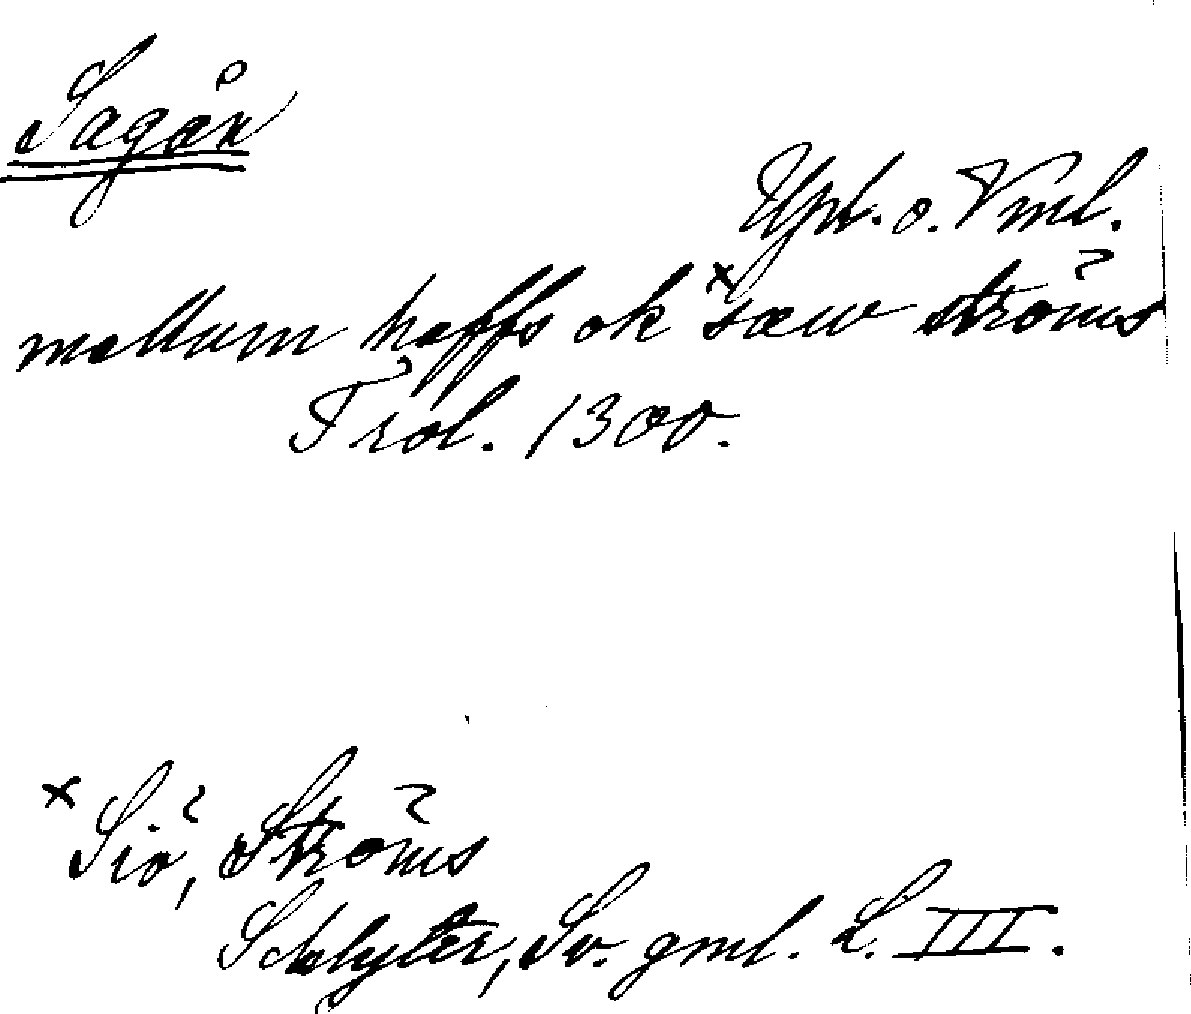 Sagån
Upl. o. Vml.
mellum haffs ok ˣsæw ströms
Fröl. 1300.
ˣ Siö, Ströms
Schlyter, Sv. gml. L. III.